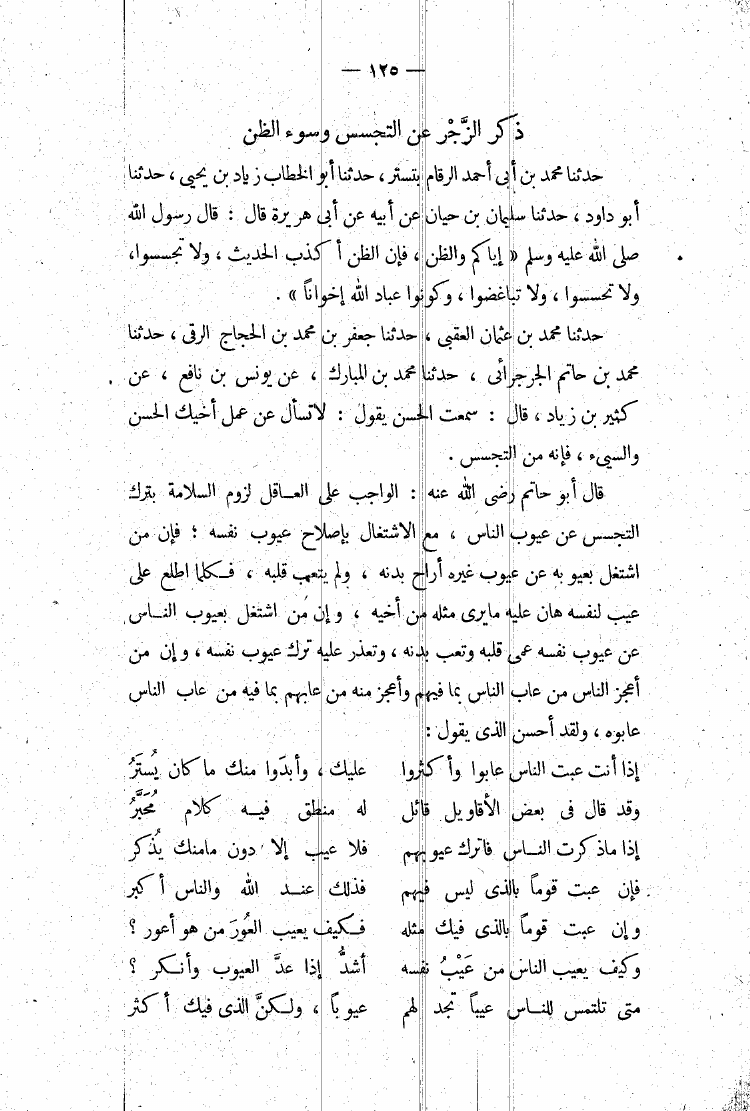 — ١٢٥ —
ذكر الزَّجْر عن التجسس وسوء الظن
حدثنا محمد بن أبى أحمد الرقام بتستر، حدثنا أبو الخطاب زياد بن يحيى، حدثنا
أبو داود، حدثنا سليمان بن حيان عن أبيه عن أبى هريرة قال: قال رسول الله
صلى الله عليه وسلم « إياكم والظن، فإن الظن أكذب الحديث، ولا تجسسوا،
ولا تحسسوا، ولا تباغضوا، وكونوا عباد الله إخواناً ».
حدثنا محمد بن عثمان العقبى، حدثنا جعفر بن محمد بن الحجاج الرقى، حدثنا
محمد بن حاتم الجرجرأئى، حدثنا محمد بن المبارك، عن يونس بن نافع، عن
كثير بن زياد، قال: سمعت الحسن يقول: لاتسأل عن عمل أخيك الحسن
والسيىء، فإنه من التجسس.
قال أبو حاتم رضى الله عنه: الواجب على العاقل لزوم السلامة بترك
التجسس عن عيوب الناس، مع الاشتغال بإصلاح عيوب نفسه؛ فإن من
اشتغل بعيوبه عن عيوب غيره أراح بدنه، ولم يتعب قلبه، فكلما اطلع على
عيب لنفسه هان عليه مايرى مثله من أخيه، وإن من اشتغل بعيوب الناس
عن عيوب نفسه عمى قلبه وتعب بدنه، وتعذر عليه ترك عيوب نفسه، وإن من
أعجز الناس من عاب الناس بما فيهم وأعجز منه من عابهم بما فيه من عاب الناس
عابوه، ولقد أحسن الذى يقول:
إذا أنت عبت الناس عابوا وأكثروا عليك، وأبدَوا منك ما كان يُستَرُ
وقد قال فى بعض الأقاويل قائل له منطق فيه كلام مُحَبَّرُ
إذا ماذكرت الناس فاترك عيوبهم فلا عيب إلا دون مامنك يُذْكر
فإن عبت قوماً بالذى ليس فيهم فذلك عند الله والناس أكبر
وإن عبت قوماً بالذى فيك مثله فكيف يعيب العُورَ من هو أعور؟
وكيف يعيب الناس من عَيْبُ نفسه أشدُّ إذا عدَّ العيوب وأنكر؟
متى تلتمس للناس عيباً تجد لهم عيوباً، ولكنَّ الذى فيك أكثر